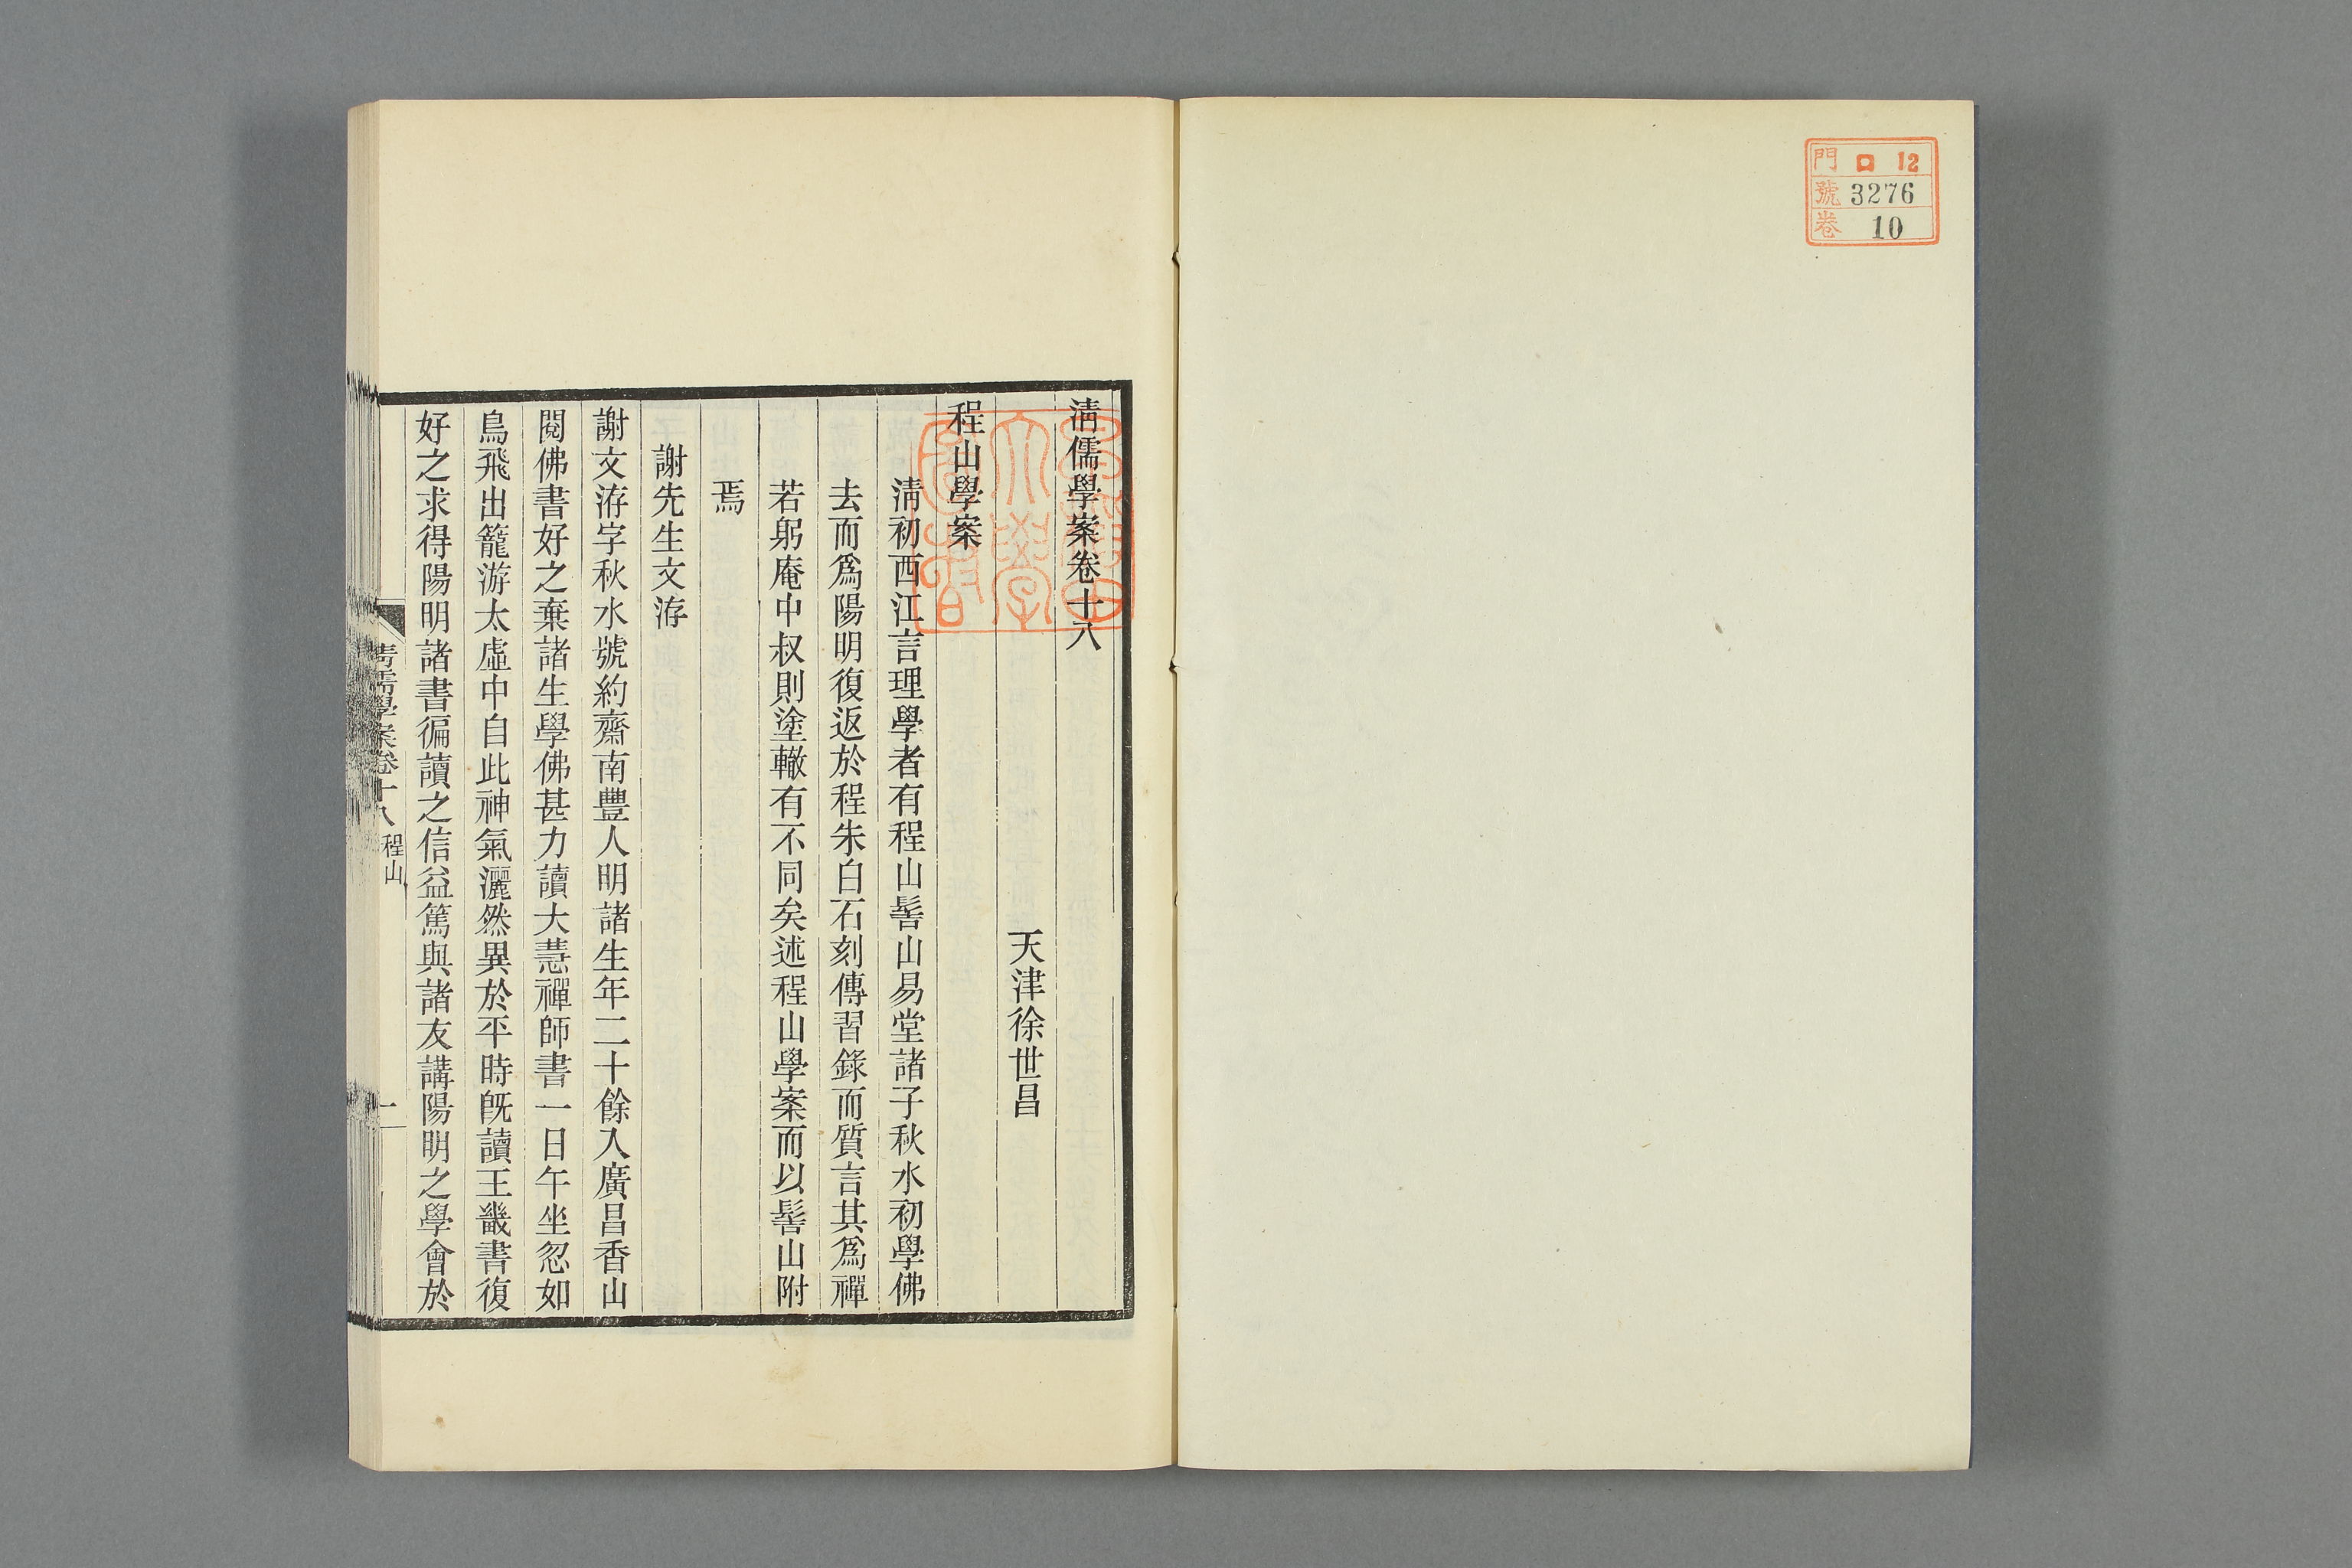 門 ロ 12
號 3276
卷 10
清儒學案卷十八
天津徐世昌
程山學案
清初西江言理學者有程山髻山易堂諸子秋水初學佛
去而爲陽明復返於程朱白石刻傳習錄而質言其爲禪
若躬庵中叔則塗轍有不同矣述程山學案而以髻山附
焉
謝先生文洊
謝文洊字秋水號約齋南豐人明諸生年二十餘入廣昌香山
閱佛書好之棄諸生學佛甚力讀大慧禪師書一日午坐忽如
鳥飛出籠游太虛中自此神氣灑然異於平時旣讀王畿書復
好之求得陽明諸書徧讀之信益篤與諸友講陽明之學會於
清儒學案卷十八 程山 一